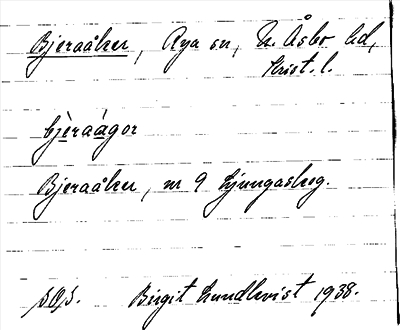 Bjeraåker, Rya sn, N. Åsbo hd,
Krist. l.
bjèraágor
Bjeraåker, nr 9 Ljungaskog.
SOS. Birgit Lundkvist 1938.